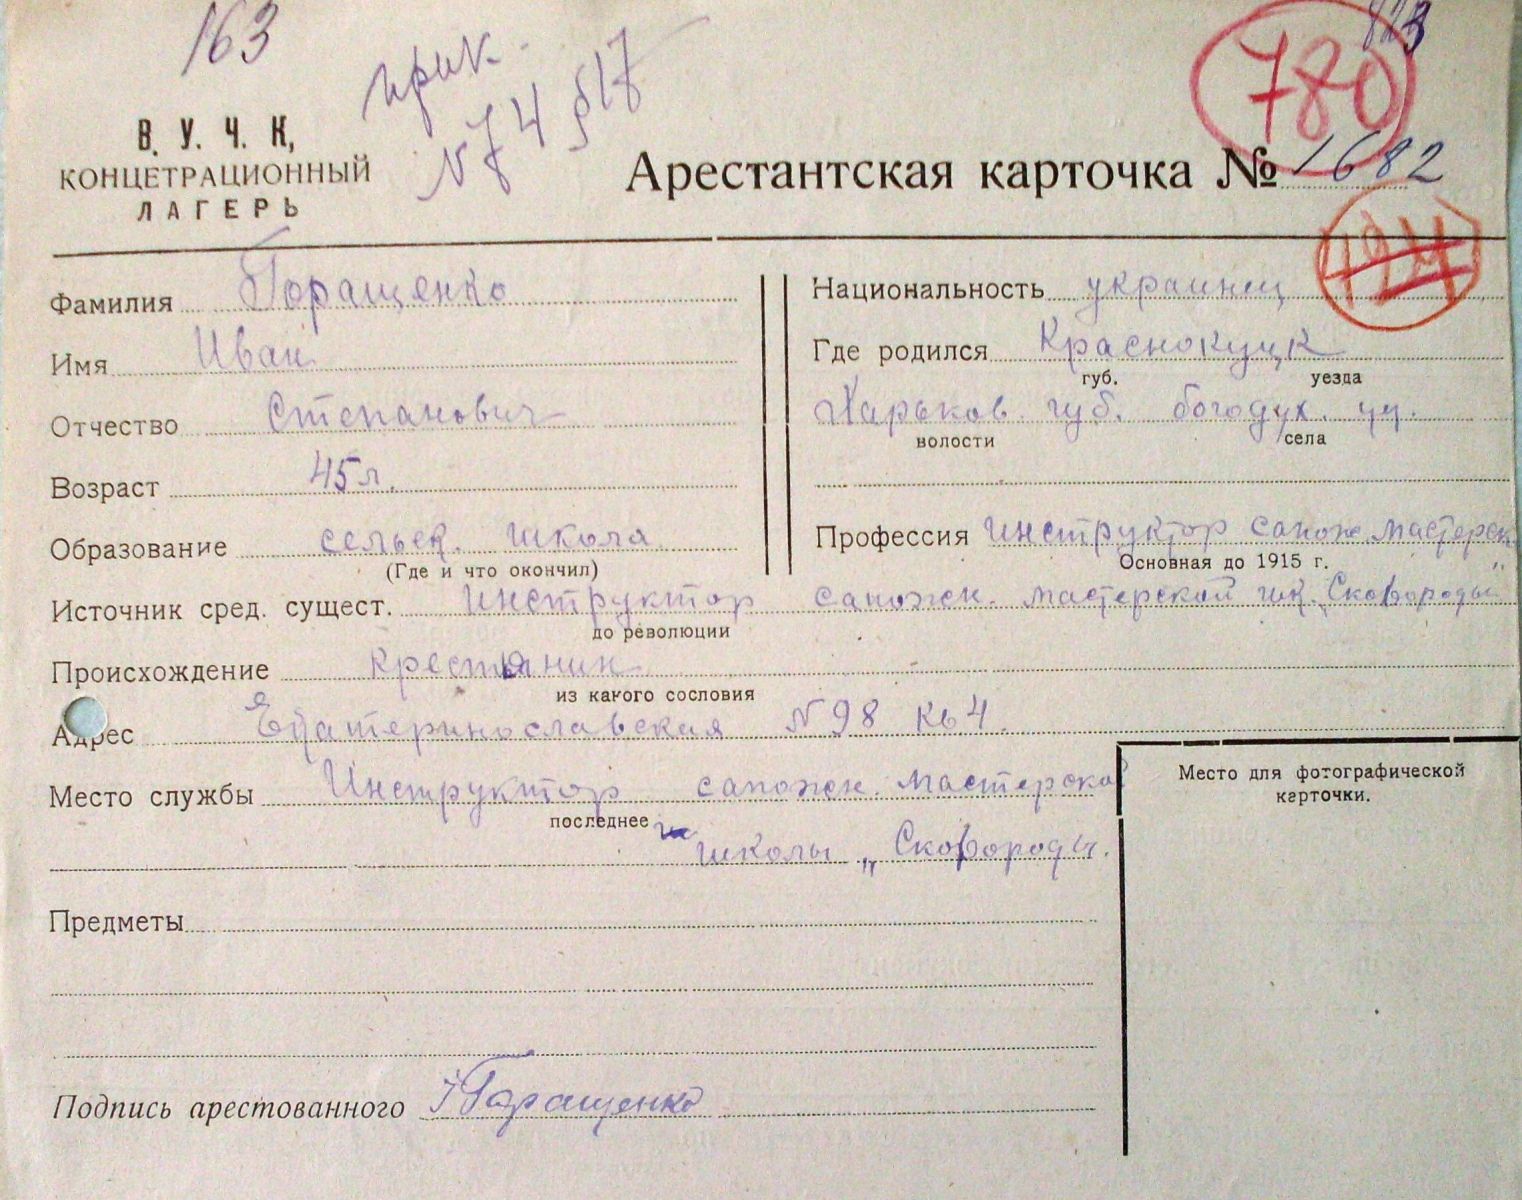 163
прик.
№ 74 §17
780
В. У. Ч. К,
КОНЦЕТРАЦИОННЫЙ
ЛАГЕРЬ
Арестантская карточка № 1682
194
Фамилия Горащенко
Имя Иван
Отчество Степанович
Возраст 45 л.
Образование сельск. школа
(Где и что окончил)
Национальность украинец
Где родился Краснокуцк
губ. уезда
Харьков. губ. богодух. уу.
волости села
Профессия Инструктор сапож. мастерск.
Основная до 1915 г.
Источник сред. сущест. Инструктор сапожн. мастерской шк. „Сковороды"
до революции
Происхождение крестьянин
из какого сословия
Адрес Екатеринославская № 98 кв 4.
Место службы Инструктор сапожн. мастерской
последнее
школы „Сковороды.
Предметы
Подпись арестованного Горащенко
Место для фотографической
карточки.